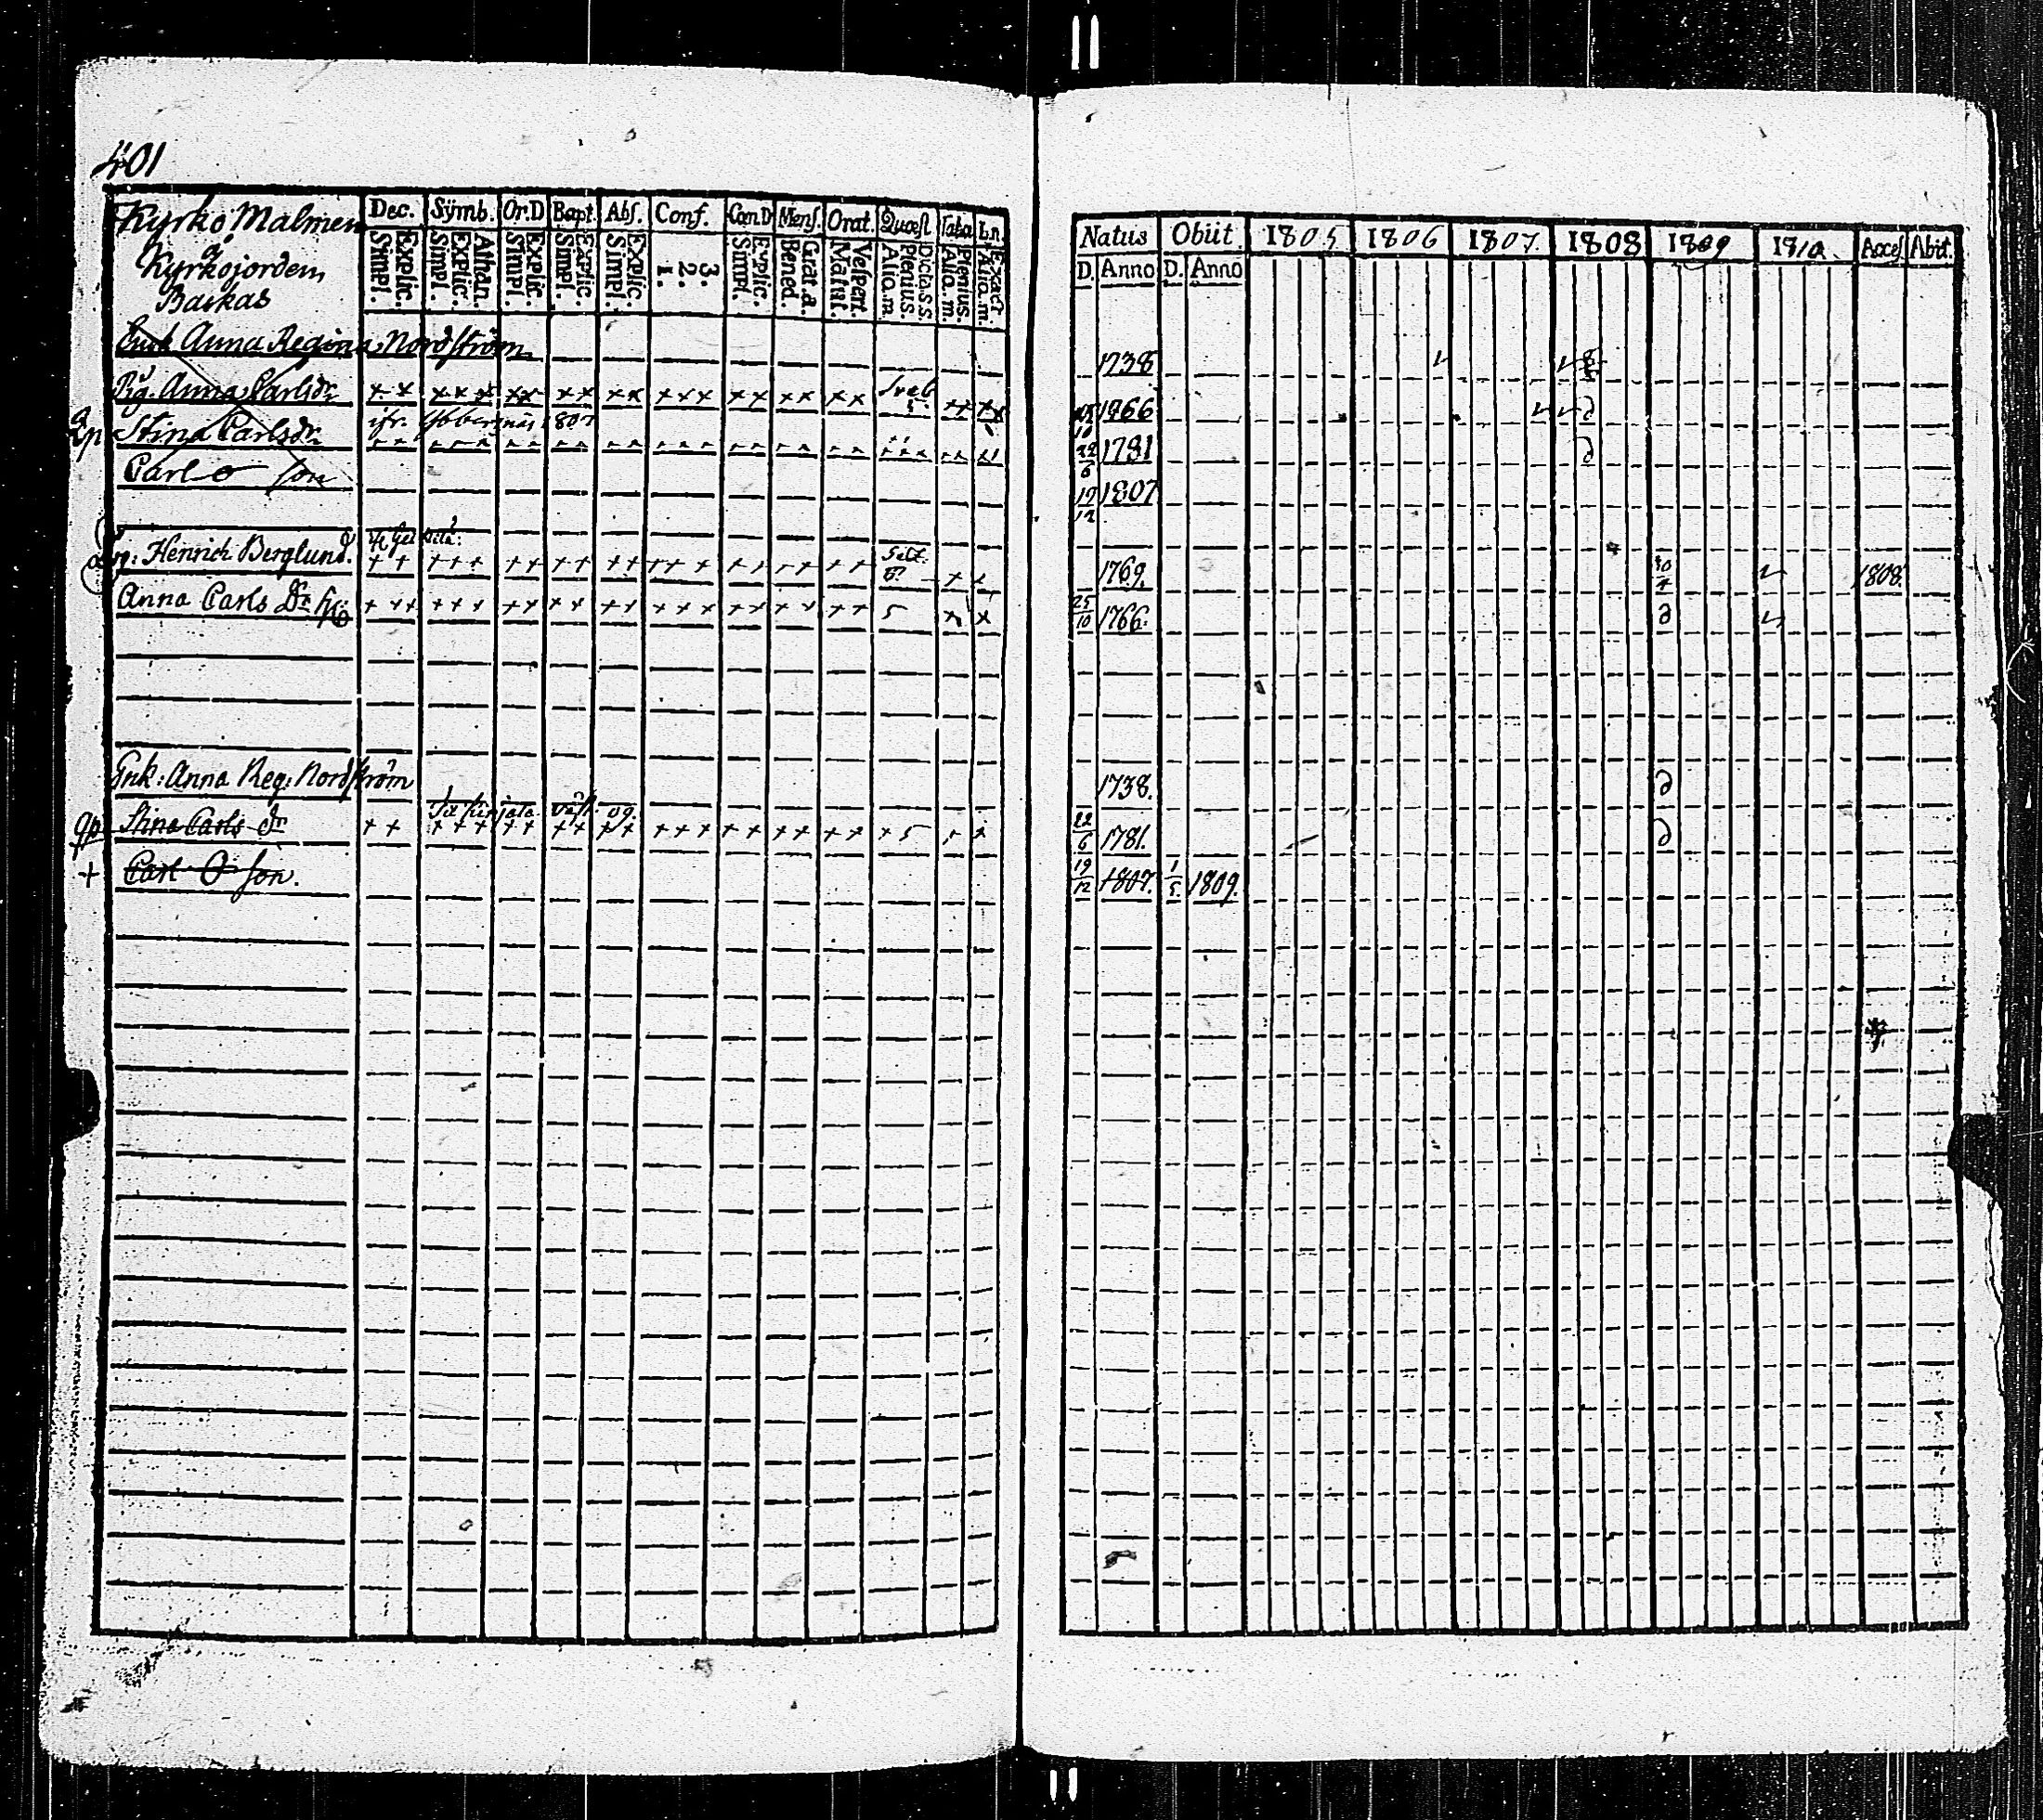 401
Kyrko Malmen
å
Kyrkojorden,
Backas
Dec. Symb. Or.D Bapt. Abs. Conf. Cœn.D Mens. Orat. Quæst Taba
Simpl. Explic. Simpl. Explic. Athan. Simpl. Explic. Simpl. Explic. Simpl. Explic. 1. 2. 3. Simpl. Explic. Bened. Grat.a. Matut. Vespert. Aliq.m. Plenius. Dicta S.S. Aliq.m. Plenius. Exact
Natus Obiit 1805 1806 1807. 1808 1809 1810. Acces Abit.
D. Anno D. Anno
Enk Anna Regina Nordström 1738
Pig. Anna Carlsdr 25/10 1766
ifr. 1807
Stina Carlsdr 22/6 1781
Carl O son 19/12 1807
Henrich Berglund. 1769. 1808.
Anna Carls Dr 5 25/10 1766.
Enk: Anna Reg: Nordström 1738.
qp Stina Carls dr 5 22/6 1781.
+ Carl O son. 19/12 1807. 1/5. 1809.